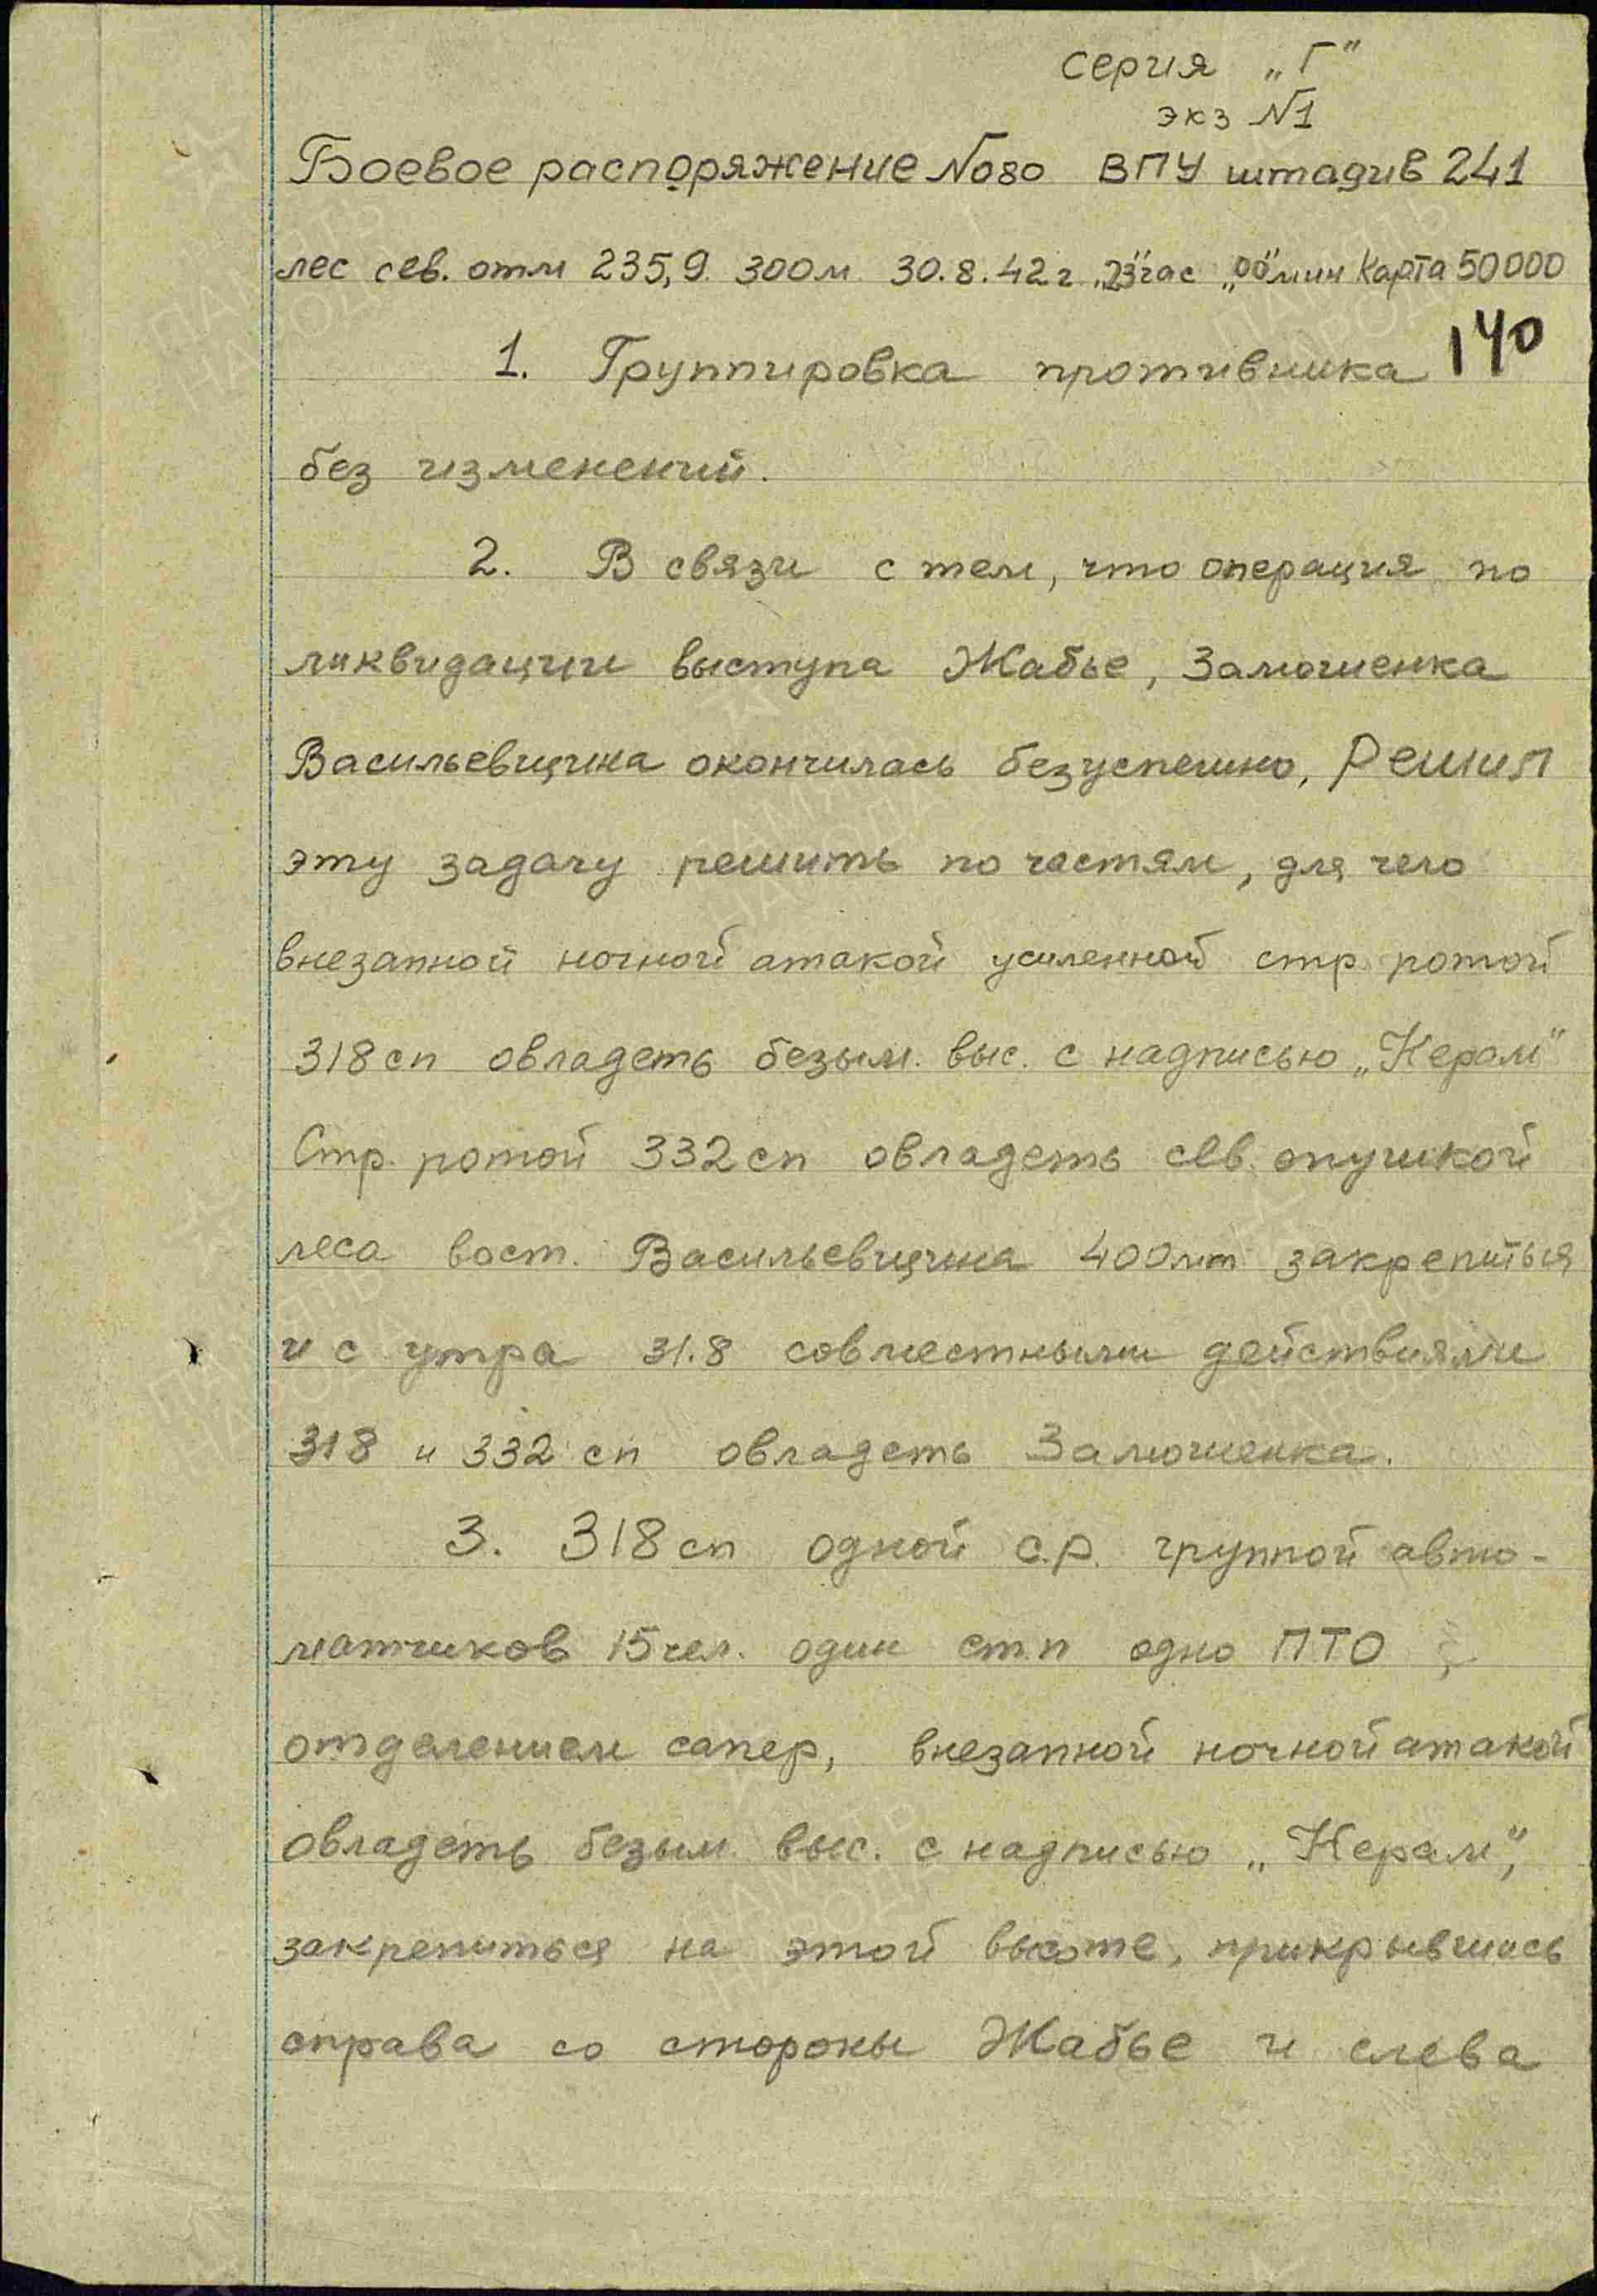 серия „Г"
экз N1
Боевое распоряжение №080 ВПУ штадив 241
лес сев. отм 235,9. 300м 30.8.42г. „23"час „00"мин Карта 50000
1. Группировка противника 140
без изменений.
2. В связи с тем, что операция по
ликвидации выступа Жабье, Залюшенка
Васильевщина окончилась безуспешно, Решил
эту задачу решить по частям, для чего
внезапной ночной атакой усиленной стр. ротой
318 сп овладеть безым. выс. с надписью „Керам"
Стр. ротой 332 сп овладеть сев. опушкой
леса вост. Васильевщина 400мт закрепиться
и с утра 31.8 совместными действиями
318 и 332 сп овладеть Залюшенка.
3. 318 сп одной с.р. группой авто-
матчиков 15 чел. один ст.п одно ПТО
отделением сапер, внезапной ночной атакой
овладеть безым. выс. с надписью „Керам",
закрепиться на этой высоте, прикрывшись
справа со стороны Жабье и слева